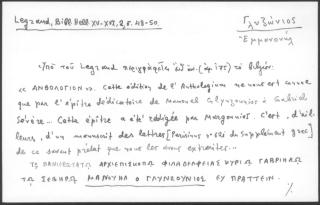 Legrand, Bibl. Hell. XV-XVI, 2, σ. 48-50.
Γλυζώνιος
Ἐμμανουήλ
Ὑπὸ τοῦ Legrand περιγράφεται (ἀρ. 175) τὸ βιβλίον
« ΑΝΘΟΛΟΓΙΟΝ ». Cette édition de l'Anthologion ne nous est connue
que par l'épître dédicatoire de Manuel Glynzounios à Gabriel
Sévère... Cette épître a été rédigée par Margounios. C'est, d'ail-
leurs, d'un manuscrit des lettres [Parisinus du Supplément grec]
de ce savant prélat que nous les avons extraites...
ΤΩ ΠΑΝΙΕΡΩΤΑΤΩ ΑΡΧΙΕΠΙΣΚΟΠΩ ΦΙΛΑΔΕΛΦΕΙΑΣ ΚΥΡΙΩ ΓΑΒΡΙΗΛΩ
ΤΩ ΣΕΒΗΡΩ ΜΑΝΟΥΗΛ Ο ΓΛΥΝΖΟΥΝΙΟΣ ΕΥ ΠΡΑΤΤΕΙΝ.
·/.